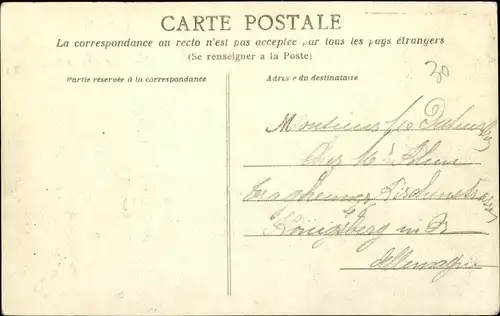 CARTE POSTALE
La correspondance au recto n'est pas acceptée par tous les pays étrangers
(Se renseigner a la Poste)
Partie réservée à la correspondance
Adresse du destinataire
30
Monsieur
Chez Mr
Kirchenstrasse
Königsberg in Pr
Allemagne